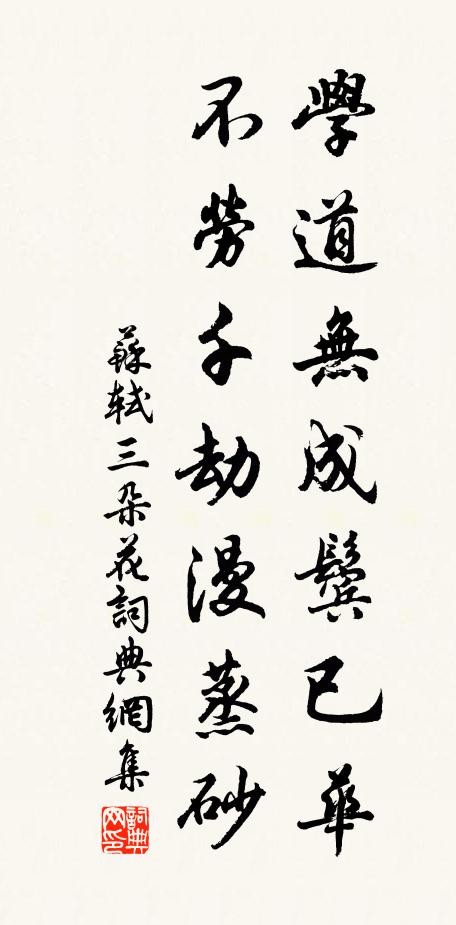 學道無成鬢已華
不勞千劫漫蒸砂
蘇軾三朵花詞典網集
詞典網印